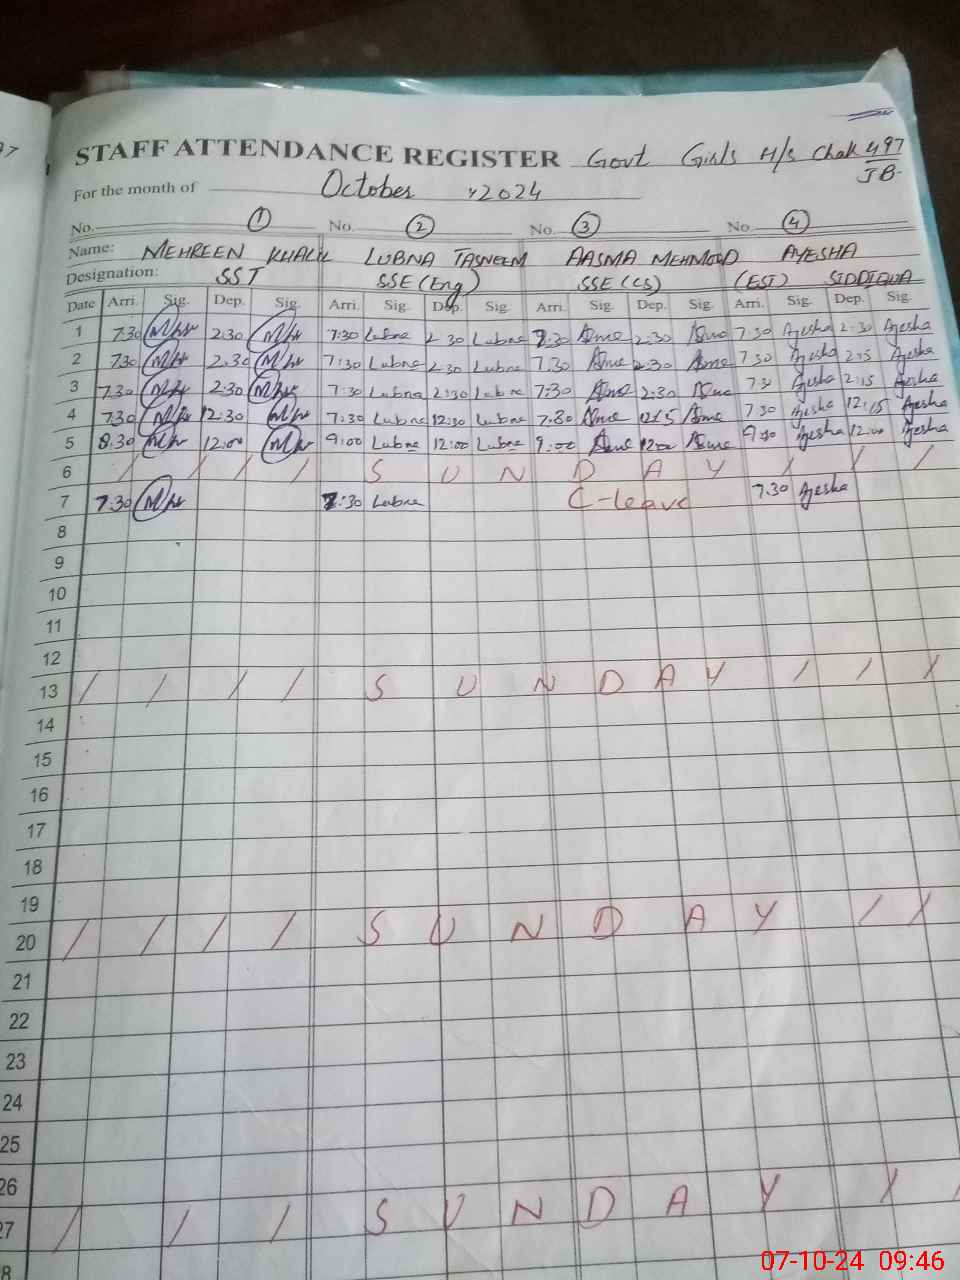 97
STAFF ATTENDANCE REGISTER Govt Girls H/S Chak 497
JB.
For the month of October, 2024
No. 1 No. 2 No. 3 No. 4
Name: MEHREEN KHALIL LUBNA TASNEEM AASMA MEHMOOD AYESHA
Designation: SST SSE (Eng) SSE (CS) (EST) SIDDIQUA
Date Arri. Sig. Dep. Sig. Arri. Sig. Dep. Sig. Arri. Sig. Dep. Sig. Arri. Sig. Dep. Sig.
1 7:30 2:30 7:30 Lubna 2:30 Lubna 7:30 2:30 7:30 Ayesha 2:30 Ayesha
2 7:30 2:30 7:30 Lubna 2:30 Lubna 7:30 2:30 7:30 Ayesha 2:15 Ayesha
3 7:30 2:30 7:30 Lubna 2:30 Lubna 7:30 2:30 7:30 Ayesha 2:15 Ayesha
4 7:30 12:30 7:30 Lubna 12:30 Lubna 7:30 12:15 7:30 Ayesha 12:15 Ayesha
5 8:30 12:00 9:00 Lubna 12:00 Lubna 9:00 12:00 Ayesha 12:00 Ayesha
6 / / / / S U N D A Y / / /
7 7:30 7:30 Lubna C-leave 7:30 Ayesha
8
9
10
11
12
13 / / / / S U N D A Y / / /
14
15
16
17
18
19
20 / / / / S U N D A Y / /
21
22
23
24
25
26
27 / / / S U N D A Y / /
07-10-24 09:46